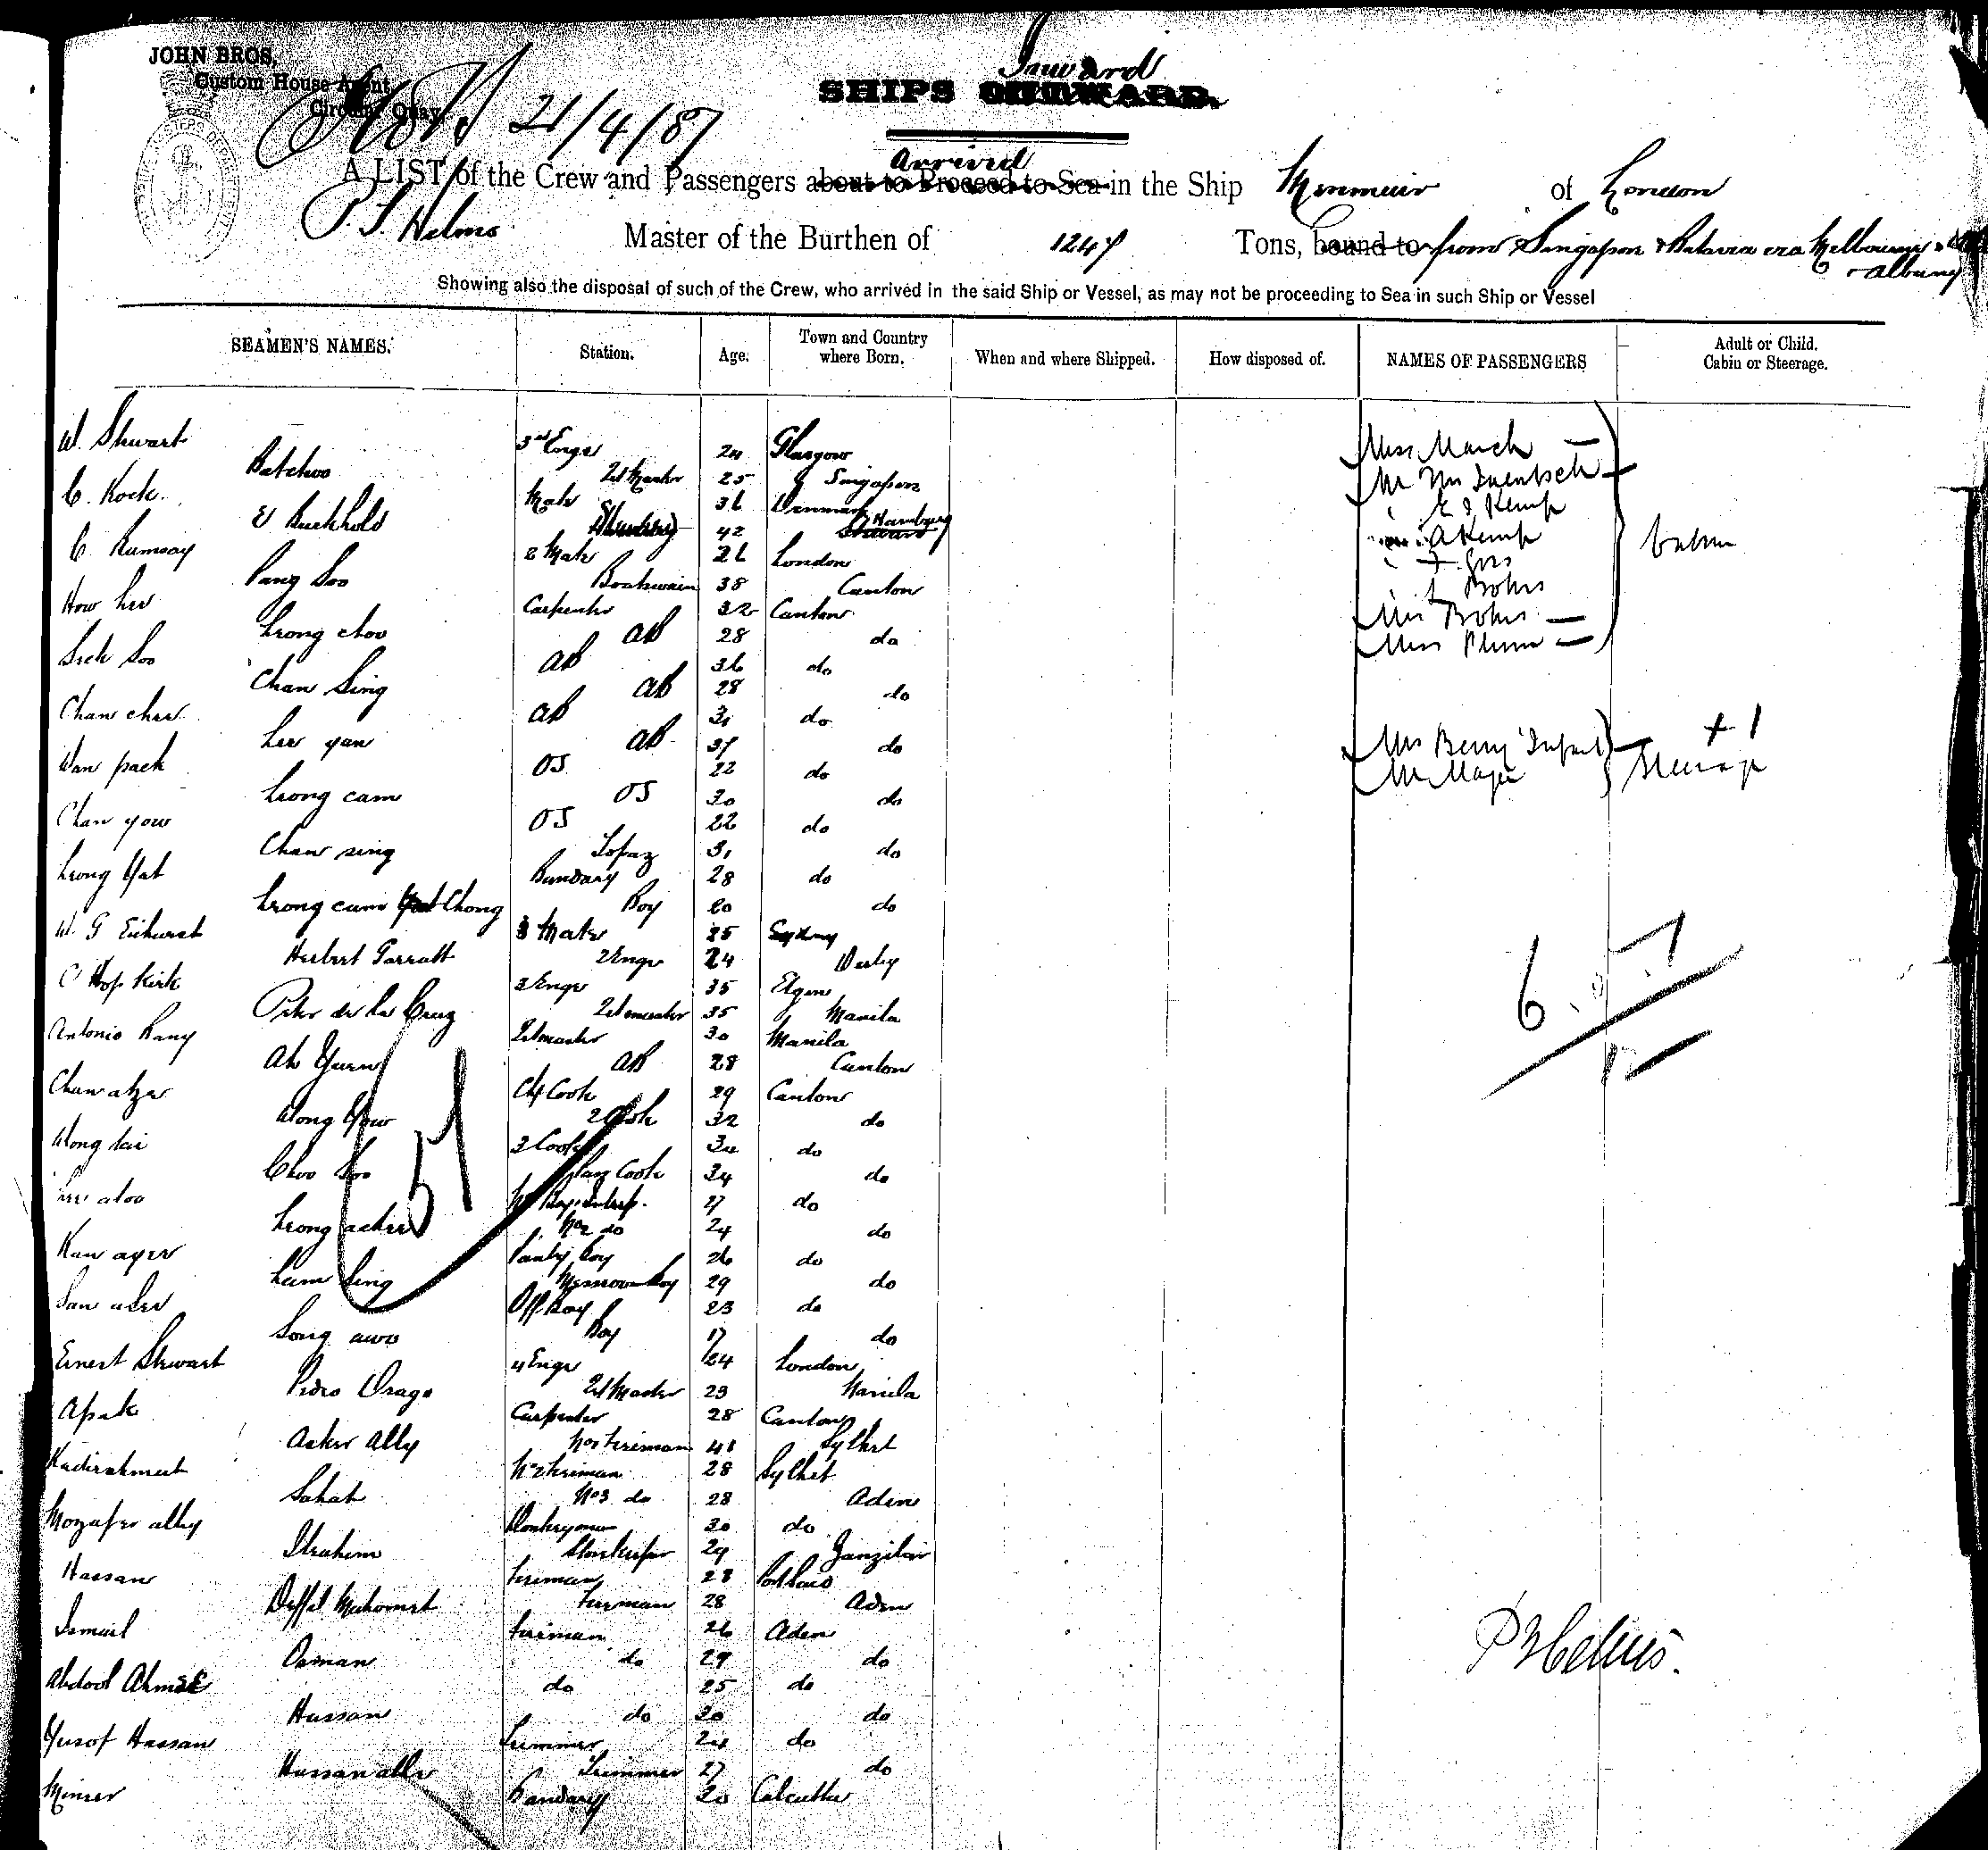 JOHN BROS,
Custom House Agent,
Circular Quay
21/4/87
Inward
SHIPS OUTWARD.
Arrived
A LIST of the Crew and Passengers about to Proceed to Sea in the Ship Menmuir of London
P. S. Helms Master of the Burthen of 1247 Tons, bound to from Singapore & Batavia via Melbourne &
Albany
Showing also the disposal of such of the Crew, who arrived in the said Ship or Vessel, as may not be proceeding to Sea in such Ship or Vessel
SEAMEN'S NAMES. Station. Age. Town and Country where Born. When and where Shipped. How disposed of. NAMES OF PASSENGERS Adult or Child. Cabin or Steerage.
W. Stewart 3rd Engr 24 Glasgow
Batchoo 25 Singapore
C. Kock Mate 36 Denmark
E Buckhold Steward 42 Hamburg
C. Rumsay 2 Mate 26 London
Pang Soo Boatswain 38 Canton
How Lee Carpenter 32 Canton
Leong choo AB 28 do
Sick Soo AB 36 do
Chan Sing AB 28 do
Chan chee AB 31 do
Lee yan AB 37 do
Wan pack OS 22 do
Leong cam OS 30 do
Chan yow OS 22 do
Chan sing Topaz 31 do
Leong Yat Bundary 28 do
Leong cum Chong Boy 20 do
W. G 3 Mate 25 Sydney
Herbert Garratt 2 Engr 24 Derby
C Hopkirk 3 Engr 35 Elgin
Peter de la Cruz 35 Manila
Antonio Rany 30 Manila
Ah Yuen AB 28 Canton
Chan Chf Cook 29 Canton
Wong Yow 2 Cook 32 do
Wong Kai 3 Cook 34 do
Choo Soo Cook 34 do
Lee aloo 27 do
Leong No 2 do 24 do
Kan ayee Pantry boy 26 do
Lum Sing Messroom boy 29 do
San Off Boy 23 do
Song awo Boy 17 do
Ernest Stewart 4 Engr 24 London
Pedro Drago 23 Manila
Apak Carpenter 28 Canton
Asker Ally No 1 Fireman 41 Sylhet
Kadirahmut No 2 Fireman 28 Sylhet
Sahat No 3 do 28 Aden
Mozafer ally Donkeyman 30 do
Ibrahim Storekeeper 29 Zanzibar
Hassan Fireman 28 Port Said
Deffel Mahomet Fireman 28 Aden
Ismail Fireman 26 Aden
Osman do 29 do
Abdool Ahmed do 25 do
Hassan do 30 do
Yusof Hassan Trimmer 24 do
Hassan alle Trimmer 27 do
Minser Bandary 20 Calcutta
Miss March
Mr
E J Kemp
A Kemp
Bohrs
Mrs Bohrs
Miss Plum
Cabin
Mrs Berry Infant
Mr Major
Steerage
+ 1
51
6
P S Helms.